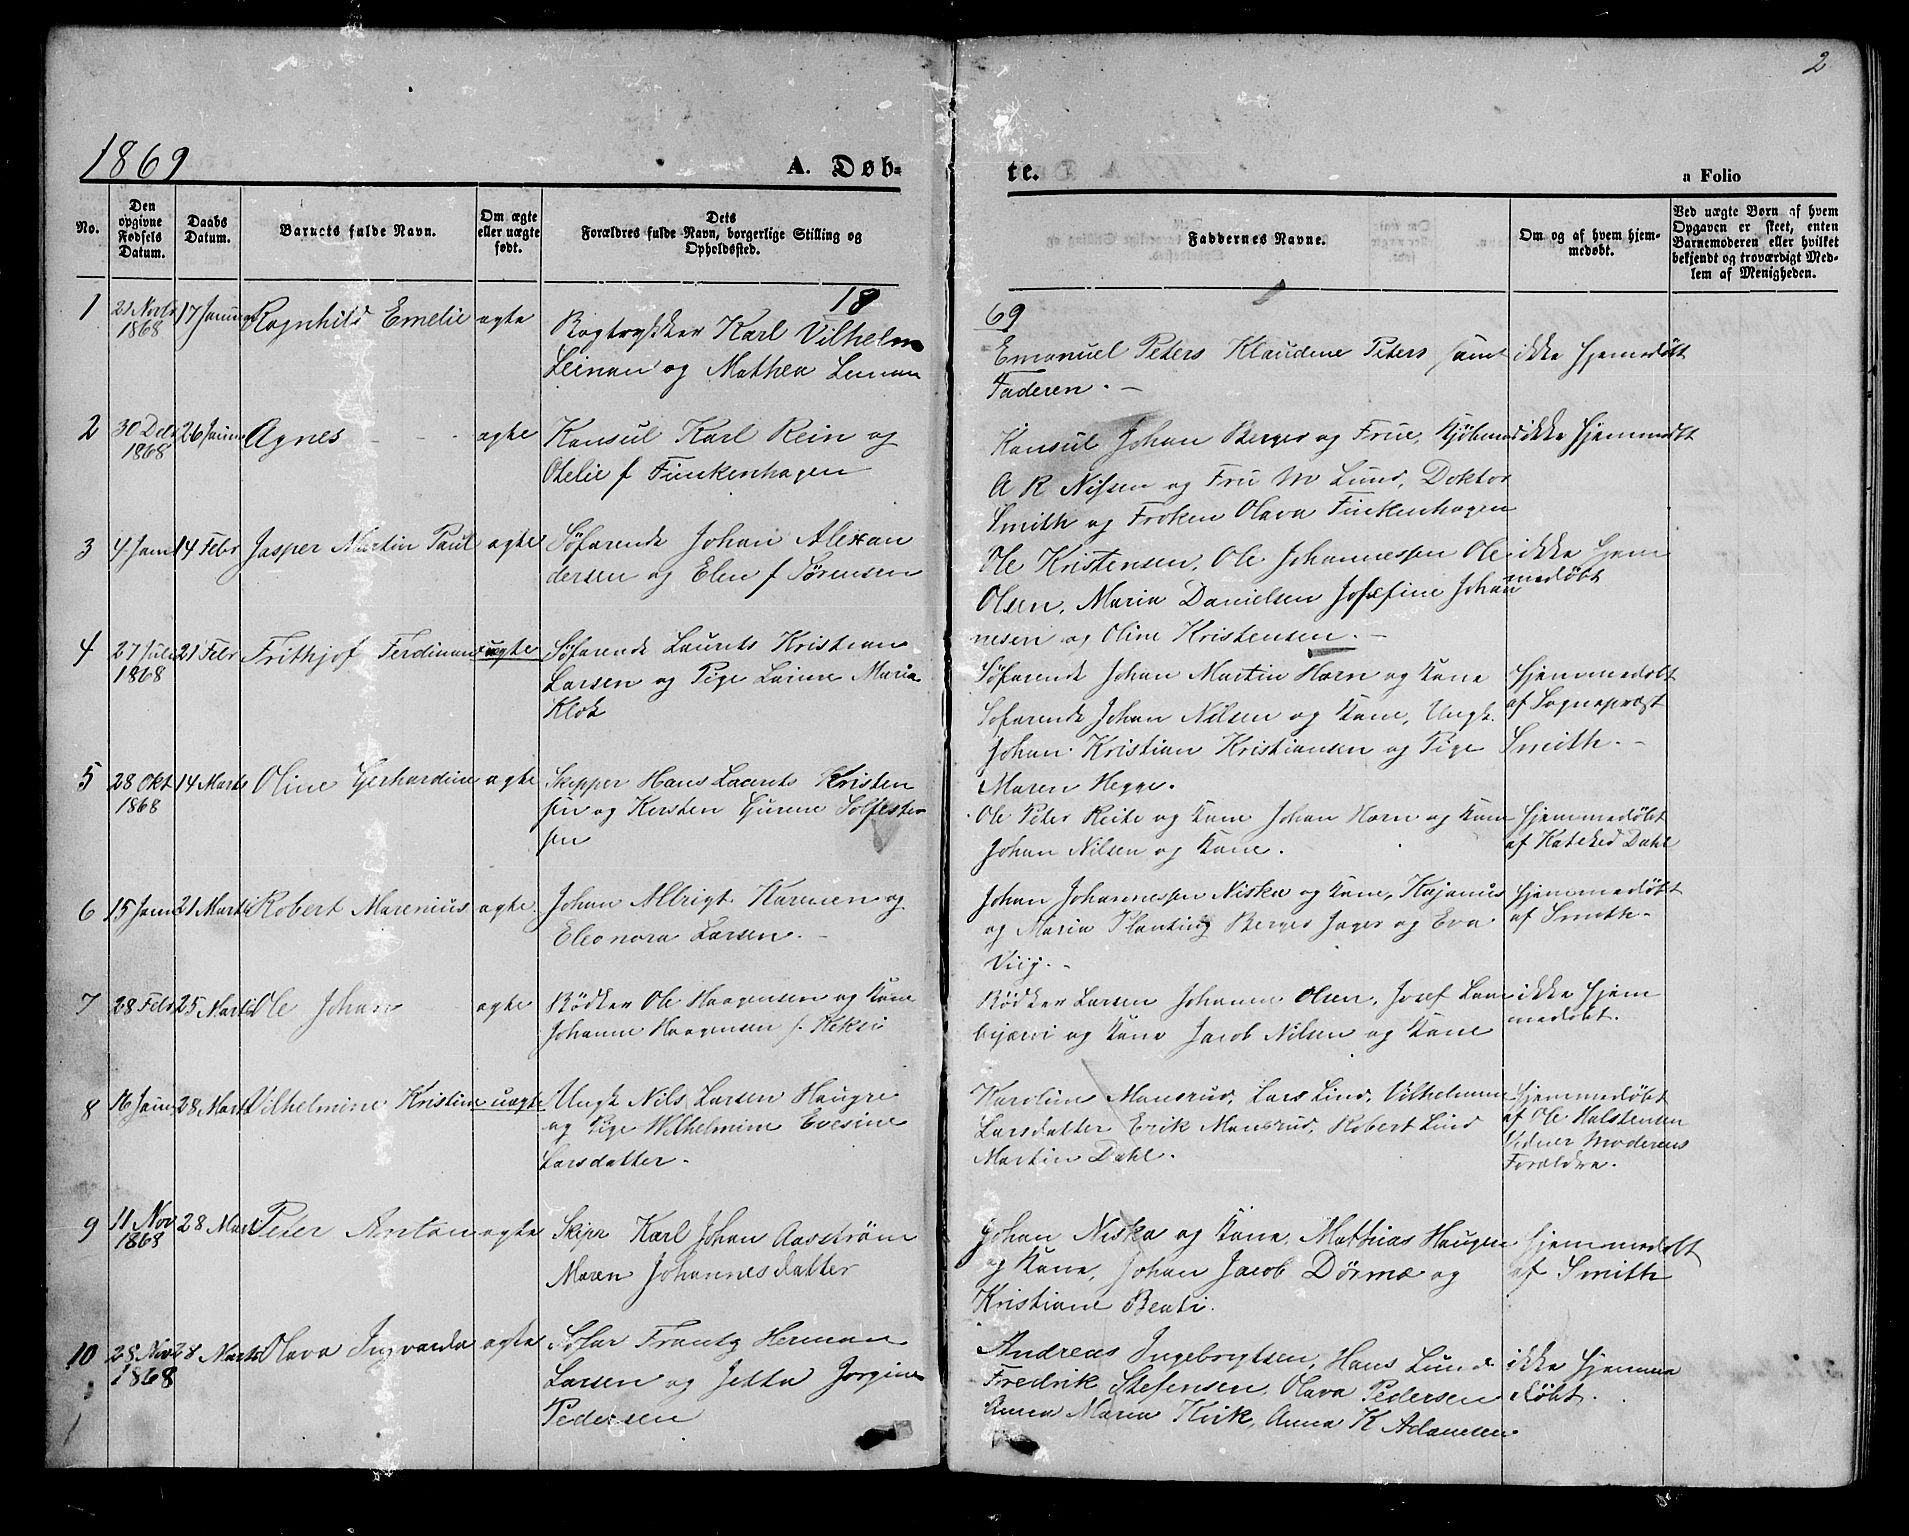 2
1869
A. Døb-
te.
a Folio
No.
Den opgivne Fødsels Datum.
Daabs Datum.
Barnets fulde Navn.
Om ægte eller uægte født.
Dets Forældres fulde Navn, borgerlige Stilling og Opholdssted.
Faddernes Navne.
Om og af hvem hjemmedøbt.
Ved uægte Børn af hvem Opgaven er skeet, enten Barnemoderen eller hvilket bekjendt og troværdigt Medlem af Menigheden.
18
69
1 21 Novbr 17 Januar Ragnhild Emelie ægte Bogtrykker Karl Vilhelm
1868
Leinan og Mathea Leinan
Emanuel Peters Klaudene Peters samt ikke hjemmedøbt
Faderen. -
2 30 Deb 26 Janu Agnes - - ægte Konsul Karl Rein og
1868
Otelie f Finkenhagen
Konsul Johan Berger og Frue, Kjøbmd ikke hjemmedøbt
A R Nissen og Fru M Lund, Doktor
Smith og Frøken Olava Finkenhagen
3 4 Janu 14 Febr Jasper Martin Paul ægte Søfarende Johan Alexan
dersen og Elen f Sørensen
Ole Kristensen, Ole Johannessen Ole ikke hjem
Olsen, Maria Danielsen Josefine Johan medøbt
nesen og Oline Kristensen. -
4 27 Juli 21 Febr Frithjof Ferdinand uægte Søfarende Laurits Kristian
1868
Larsen og Pige Maria
Klok
Søfarende Johan Martin Horn og Kone Hjemmedøbt
Søfarende Johan Nilsen og Kone, Ungk. af Sognepræst
Johan Kristian Kristiansen og Pige Smith. -
Maren Hegge.
5 28 Okt 14 Marts Oline Gerhardine ægte Skipper Hans Laurits Kristen
1868
sen og Kersten Gurine Solfester
sen
Ole Peter Reite og Kone Johan Horn og Kone Hjemmedøbt
Johan Nilsen og Kone. af Kateked Dahl
6 15 Janu 21 Marts Robert Marenius ægte Johan Albrigt Karenen og
Eleonora Larsen. -
Johan Johannessen Niska og Kone, Kajanus Hjemmedøbt
og Maria Planting Berger Jager og Eva af Smith -
Viig. -
7 28 Febr 25 Marts Ole Johan ægte Bødker Ole Haagensen og Kone
Johanne Haagensen f. Keksi
Bødker Larsen Johanne Olsen, Josef Lam ikke hjem
bijærvi og Kone Jacob Nilsen og Kone medøbt.
8 16 Janu 28 Marts Vilhelmine Kristine uægte Ungk Nils Larsen Haugre
og Pige Wilhelmine Evesine
Larsdatter.
Karoline Mansrud, Lars Lind, Vilhelmine Hjemmedøbt
Larsdatter Erik Mansrud, Robert Lind af Ole Halstensen
Martin Dahl. Vidner Moderens
Forældre.
9 11 Nov 28 Marts Peter Anton ægte Skipr Karl Johan Aastrøm
1868
Maren Johannesdatter
Johan Niska og Kone, Mathias Haugen hjemmedøbt
og Kone, Johan Jacob Dørmæ og af Smith
Kristiane Beati.
10 28 Nov 28 Marts Olava Ingvarda ægte Søfar Frantz Herman
1868
Larsen og Jetta Jorgine
Pedersen
Andreas Ingebrigtsen, Hans Lund ikke hjemme
Fredrik Stefensen, Olava Pedersen døbt.
Anna Maria Kvik, Anna K Adamsen